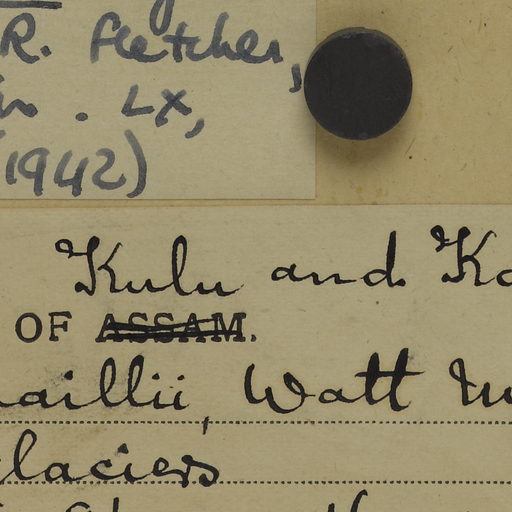 R. Fletcher,
. LX,
(1942)
Kulu and
OF ASSAM.
aillii, Watt
laciers